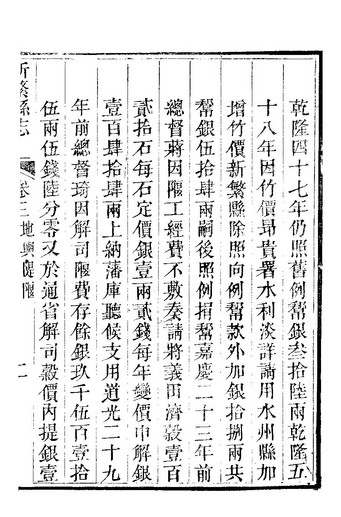 乾隆四十七年仍照舊例幫銀叁拾陸兩乾隆五
十八年因竹價昻貴署水利淡詳請用水州縣加
增竹價新繁縣除照向例幫款外加銀拾捌兩共
幫銀伍拾肆兩嗣後照例捐幫嘉慶二十三年前
總督蔣因堰工經費不敷奏請將義田濟穀壹百
貳拾石每石定價銀壹兩貳錢每年變價申解銀
壹百肆拾肆兩上納藩庫聽候支用道光二十九
年前總督琦因解司堰費存餘銀玖千伍百壹拾
伍兩伍錢陸分零又於通省解司穀價內提銀壹
新繁縣志
卷三地輿隄堰
二